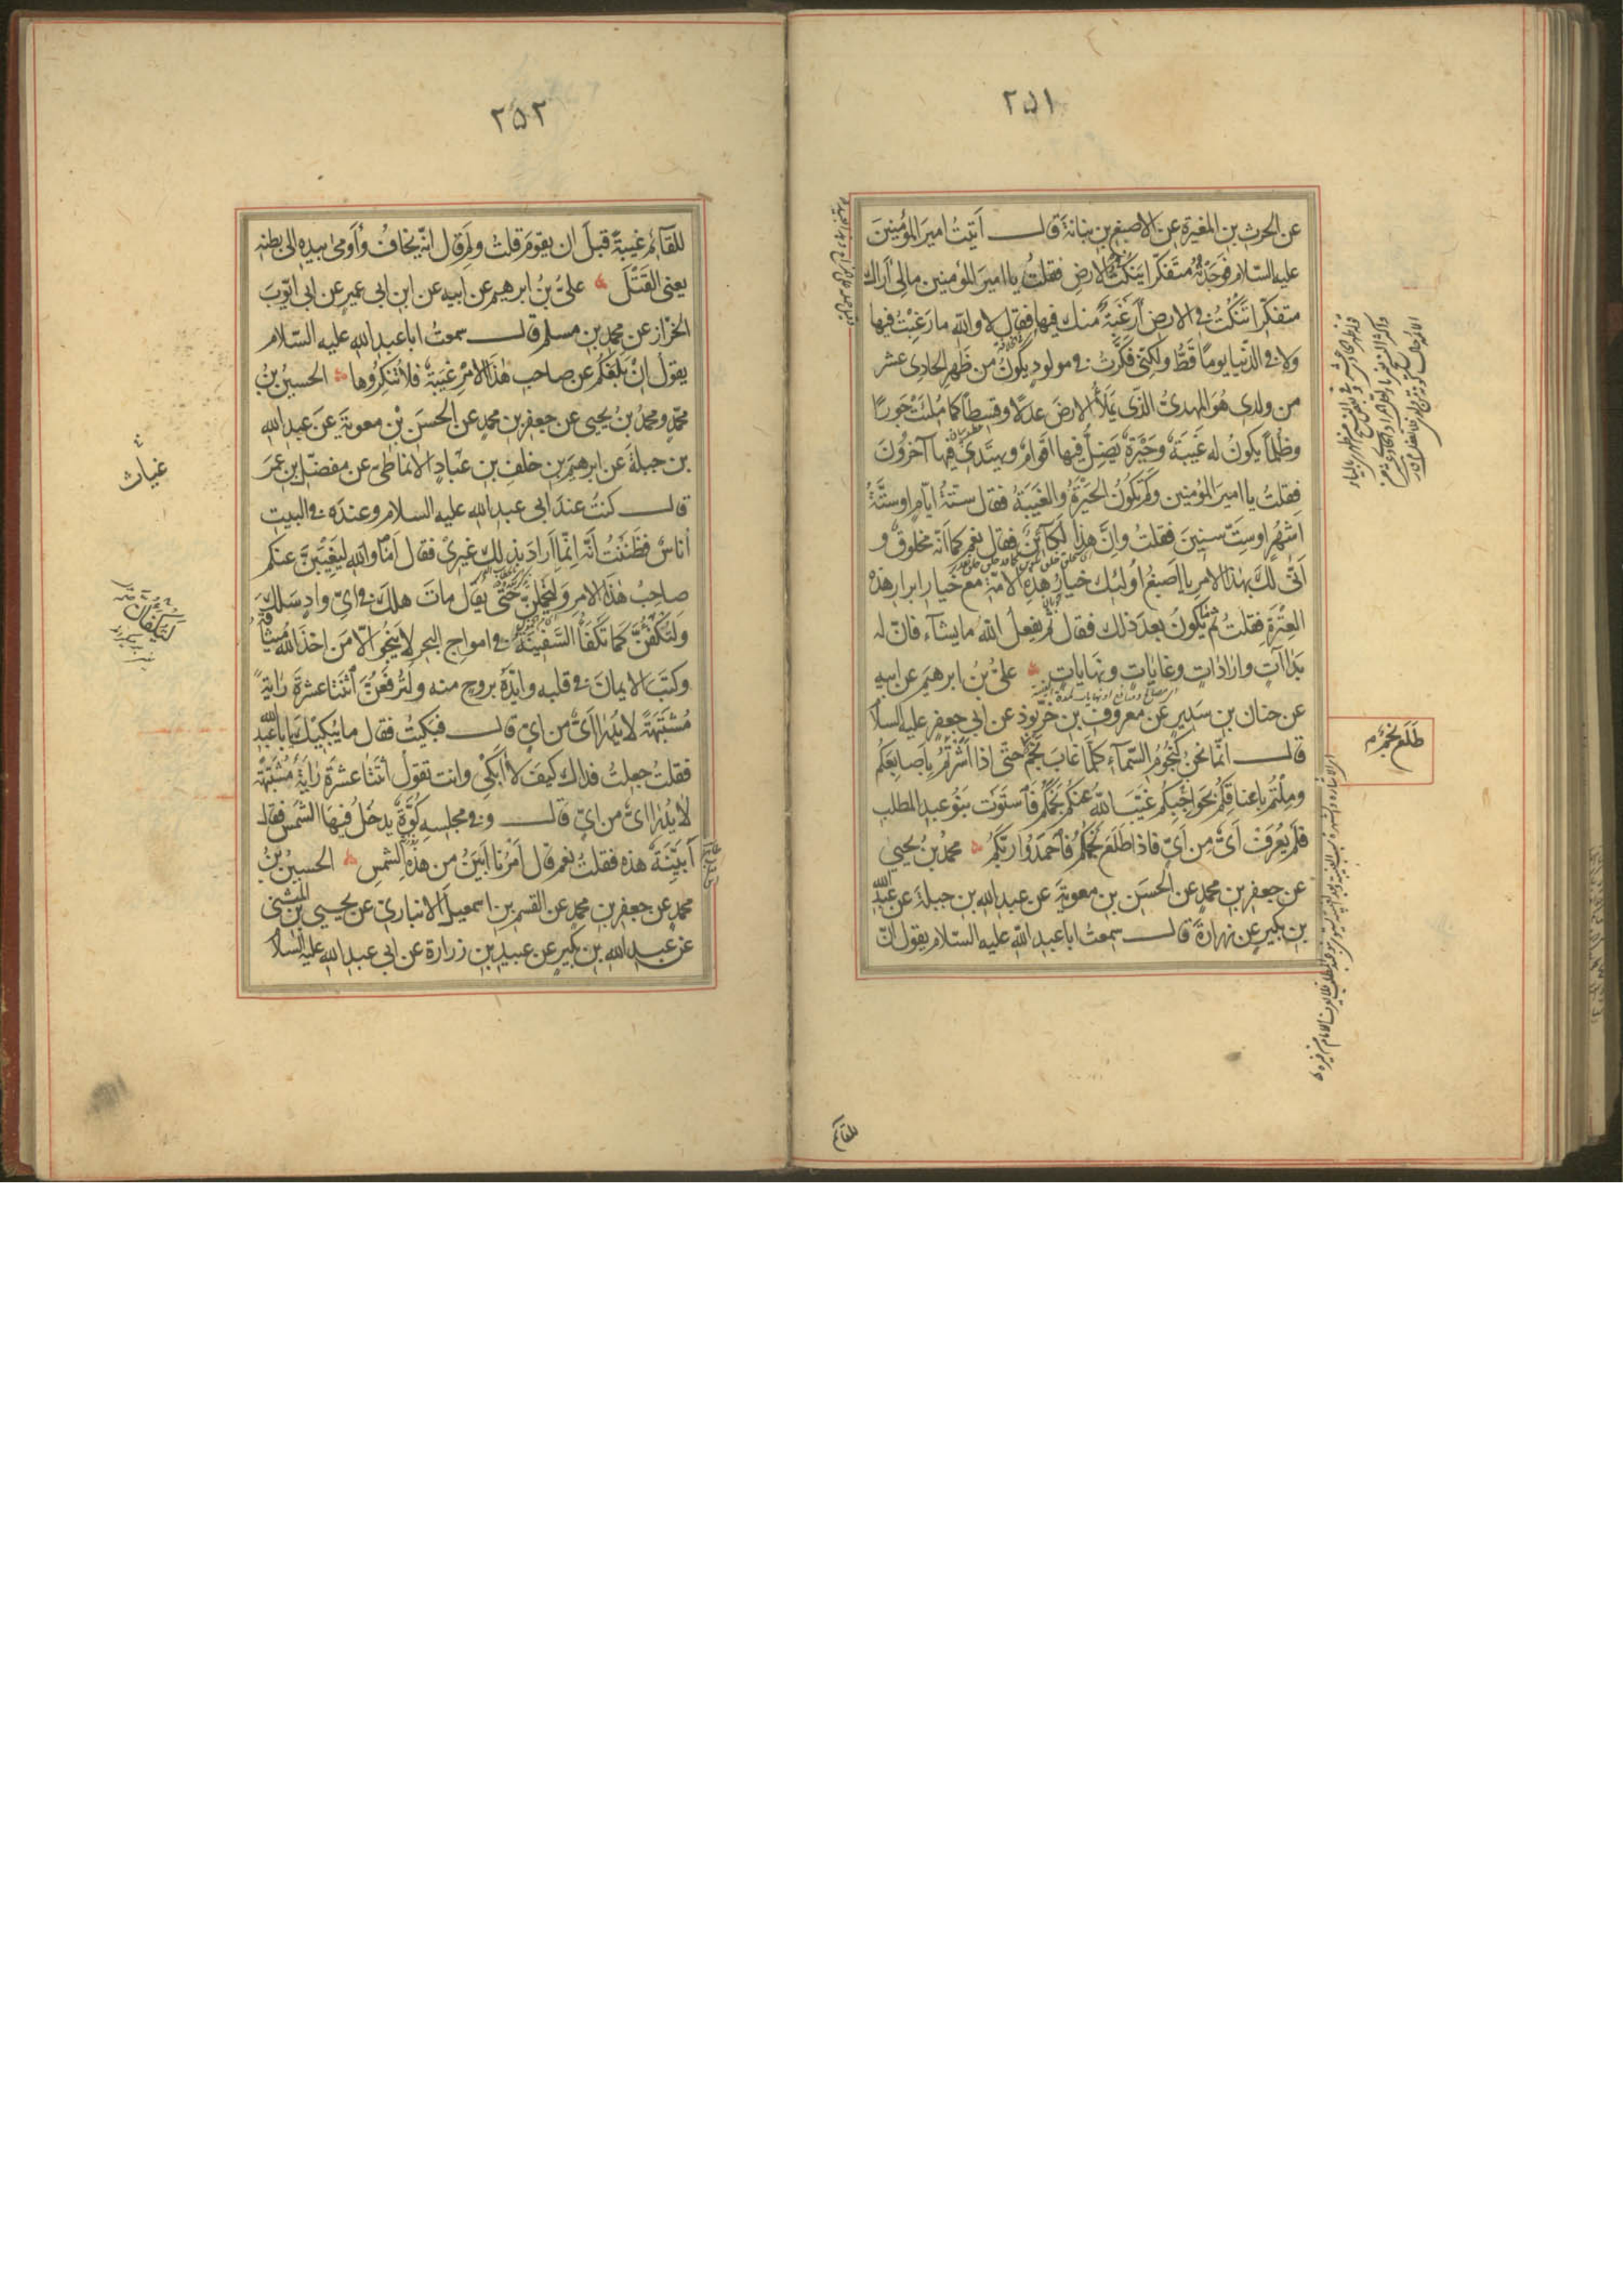 ٢٥١
عن الحرث بن المغيرة عن الاصبغ بن نباتة قال أتيتُ اميرَ المؤمنينَ
عليه السّلام فوَجَدْتُه متَفكّرا يَنكُتُ الارضِ فقلتُ يا اميرَ المؤمنين مالى أراك
متفكّرا تَنكُتُ فى الارض أرَغبَةً منك فيها فقال لا والله ما رَغِبْتُ فيها
ولا فى الدّنيا يومًا قطُّ ولكنّى فكَّرتُ فى مولودٍ يكونُ من ظَهرِ الحادِى عشر
من ولدى هُوَ المهدىّ الّذى يَمَلأُ الارضَ عدلًا وقسطًا كما مُلِئَتْ جَورًا
وظُلمًا يكونُ له غَيبَةٌ وحَيْرَةٌ يَضِلُّ فيها اقوامٌ ويهتَدى فيها آخرُونَ
فقلتُ يا اميرَ المؤمنين وكَم تكونُ الحَيْرَةُ والغَيبَةُ فقال ستّةُ ايّامٍ او ستَّةُ
اشهُرٍ او سِتّ سنينَ فقلتُ وانَّ هذا لَكآئنٌ فقال نعم كما انّه مخلوقٌ و
اَنّى لكَ بهذا الامرِ يا اَصبغُ اولئِك خيارُ هذِهِ الامّة مع خيار ابرار هذه
العِترَةِ فقلتُ ثُمّ ما يكونُ بعدَ ذلك فقال ثُمّ يفعلُ الله ما يشآء فانّ له
بَداآتٍ وارَاداتٍ وغَاياتٍ ونهاياتٍ علىُّ بنُ ابرهيم عن ابيه
عن حنان بن سَديرٍ عن معروفِ بن خَرّبوذ عن ابى جعفرٍ عليه السلام
قال انّما نحنُ كنُجُومُ السّمآء كلّما غابَ نَجمٌ طَلَع نَجمٌ حتّى اذا اشَرْتُم بِاَصابِعِكُم
ومِلْتُم باعناقِكُم بحَواجِبِكُم غيَّبَ الله عنكُم نَجمَكُم فَاستَوَت بَنُو عبدِ المطلبِ
فلَم يُعرَف اَىٌّ مِن اَىٍّ فاذا طَلعَ نَجمُكُم فَاحمَدُوا رَبَّكُم محمّدُ بنُ يحيى
عن جعفر بن محمدٍ عن الحسَن بن معوية عن عبد الله بن جبلة عن عبد الله
بن بكير عن زرارة قال سمعتُ ابا عبد الله عليه السّلام يقول انّ
طَلَع نَجمٌ م
للقائم
٢٥٢
للقآئم غيبةً قبلَ ان يقومَ قلتُ ولِمَ قال انّه يخافُ وأَومى بيده الى بطنه
يعنى القَتْلَ علىُّ بنُ ابرهيم عن ابيه عن ابن ابى عميرٍ عن ابى ايّوبَ
الخرّاز عن محمد بن مسلم قال سمعتُ ابا عبد الله عليه السّلام
يقولُ انْ بَلَغَكُم عن صاحب هٰذَا الامْرِ غَيبَةٌ فلا تُنكِرُوها الحسينُ بنُ
محمّدٍ ومحمدُ بنُ يحيى عن جعفر بن محمدٍ عن الحسَن بْنِ معويةَ عن عبد الله
بن جبلةَ عن ابرهيمَ بن خلف بن عبّادٍ الانماطى عن مفضّل بن عمَرَ
قال كنتُ عندَ ابى عبد الله عليه السلام وعندَه فى البيتِ
أناسٌ فظَنَنتُ انّه انّما ارادَ بذلك غيرى فقال اَمَا والله ليَغِيبَنّ عنكم
صاحبُ هٰذا الامر وليَخملَنّ حتّى يقال ماتَ هلكَ فى اىّ وادٍ سَلكَ
ولتُكفَئُنَّ كما تُكفَأُ السّفينةُ فى امواج البحر لا ينجُو الّا من اخذَ اللهُ ميثاقَهُ
وكتبَ الايمانَ فى قلبه وايّدهُ بروحٍ منه ولتُرفَعَنَّ اثنتا عشرة رايةً
مُشتَبِهةً لا يُدرىٰ اَىٌّ من اىٍّ قال فبَكيتُ فقال ما يُبكيكَ يا ابا عبد الله
فقلتُ جعلتُ فداك كيفَ لا ابكى وانت تقولُ اثنتا عشرةَ رايةً مُشتَبِهَةً
لا يُدرىٰ اىٌّ من اىٍّ قال وفى مجلسِهِ كُوَّةٌ يدخُلُ فيها الشّمسُ فقال
أبَيّنَةٌ هذه فقلتُ نعم قال اَمْرُنا ابْيَنُ من هذِهِ الشّمسِ الحسينُ بنُ
محمدٍ عن جعفر بن محمدٍ عن القسم بن اسمعيل الانبارىّ عن يحيى بن المثنى
عن عبد الله بن بكير عن عبيد بن زرارة عن ابى عبد الله عليه السلام
غياث
لتكفأن